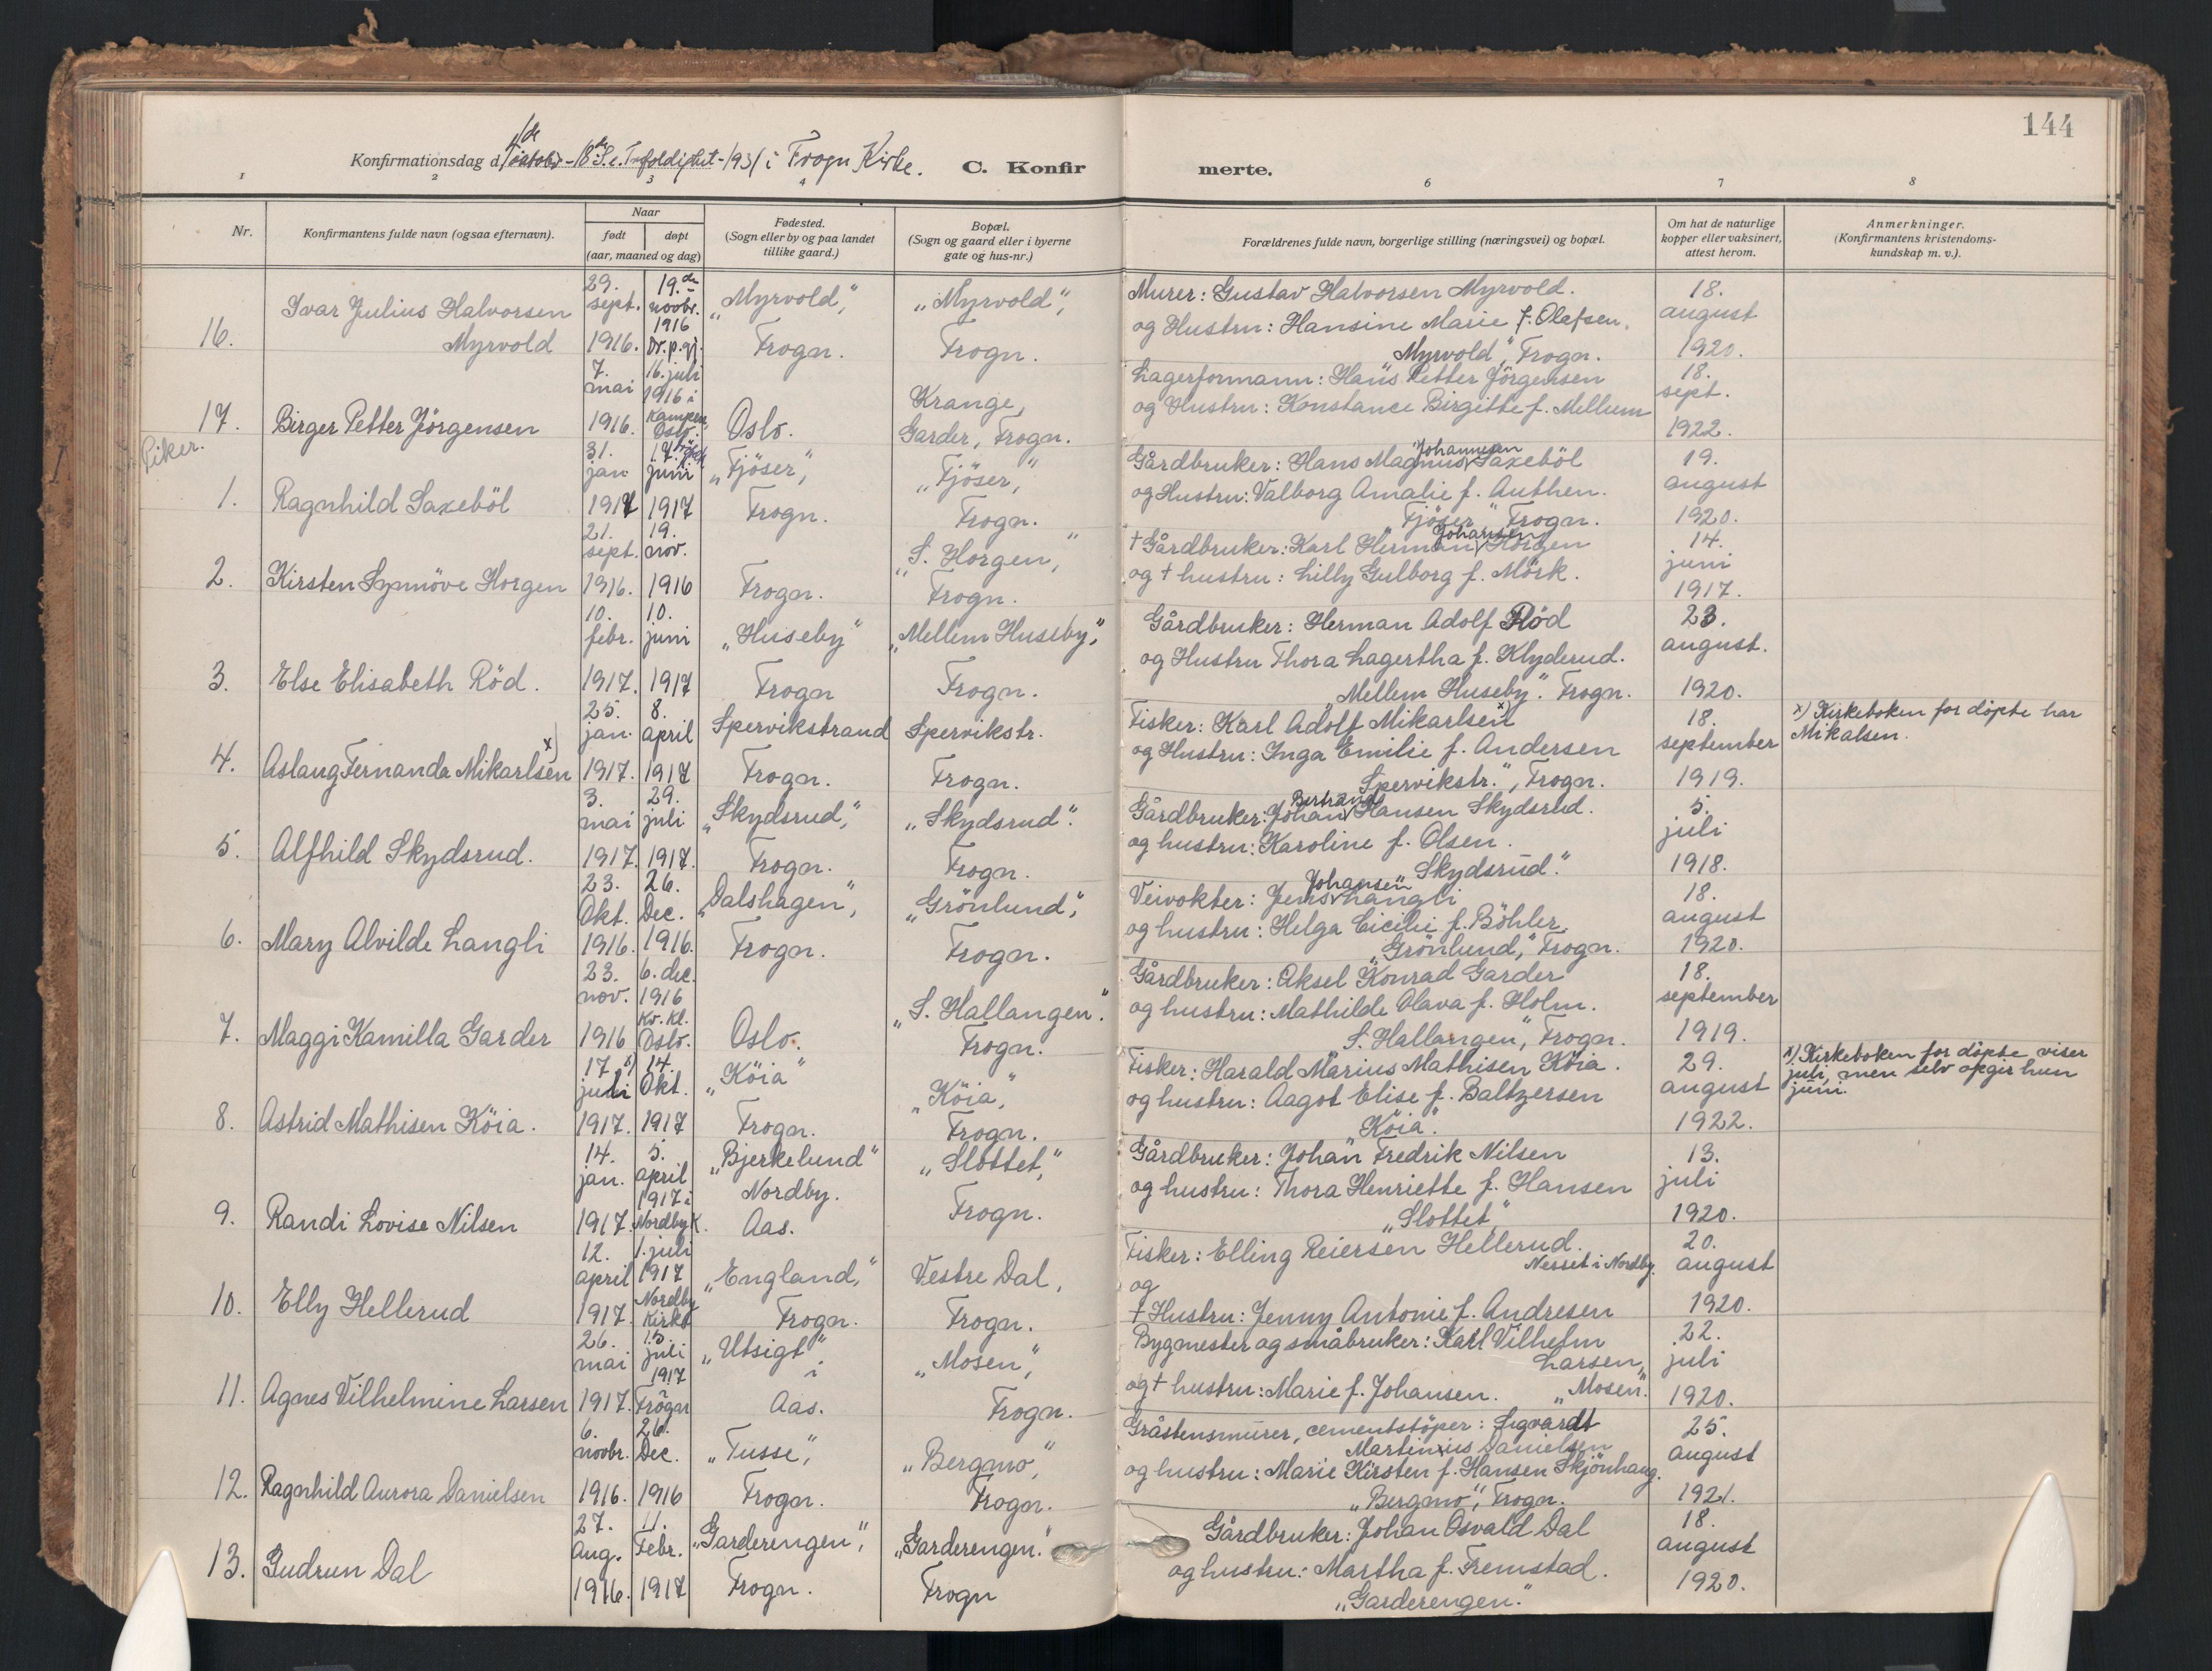 144
Konfirmationsdag d. 4de oktober - 18de S. e. Trefoldighet - 1931 i Frogn Kirke. C. Konfirmerte.
1 2 3 4 6 7 8
Nr. Konfirmantens fulde navn (ogsaa efternavn). Naar født døpt (aar, maaned og dag) Fødested. (Sogn eller by og paa landet tillike gaard.) Bopæl. (Sogn og gaard eller i byerne gate og hus-nr.) Forældrenes fulde navn, borgerlige stilling (næringsvei) og bopæl. Om hat de naturlige kopper eller vaksinert, attest herom. Anmerkninger. (Konfirmantens kristendomskundskap m. v.).
16. Ivar Julius Halvorsen Myrvold
29. sept. 1916.
19.de novbr. 1916 Dr.p.gj.
"Myrvold", Frogn.
"Myrvold", Frogn.
Murer: Gustav Halvorsen Myrvold.
og Hustru: Hansine Marie f. Olafsen.
"Myrvold", Frogn.
18. august 1920.
17. Birger Petter Jörgensen
7. mai 1916.
16. juli 1916 i Kampen, Oslo.
Oslo.
Krange, Garder, Frogn.
Lagerformann: Hans Petter Jörgensen
og Hustru: Konstance Birgitte f. Mellum
18. sept. 1922.
Piker.
1. Ragnhild Saxeböl
31. jan. 1917
17. juni 1917
"Fjöser", Frogn.
"Fjöser", Frogn.
Gårdbruker: Hans Magnus Johannesen Saxeböl
og Hustru: Valborg Amalie f. Authen.
"Fjöser", Frogn.
19. august 1920.
2. Kirsten Synnöve Horgen
21. sept. 1916.
19. nov. 1916
Frogn.
"S. Horgen," Frogn.
+ Gårdbruker: Karl Herman Johansen Horgen
og + hustru: Lilly Gulborg f. Mörk.
14. juni 1917.
3. Else Elisabeth Röd.
10. febr. 1917.
10. juni 1917
"Huseby" Frogn
"Mellem Huseby", Frogn.
Gårdbruker: Herman Adolf Röd
og Hustru Thora Lagertha f. Klyderud.
"Mellem Huseby". Frogn.
23. august. 1920.
4. Aslaug Fernanda Mikarlsen x)
25. jan. 1917.
8. april 1917
Spervikstrand Frogn.
Spervikstr. Frogn.
Fisker: Karl Adolf Mikarlsen x)
og Hustru: Inga Emilie f. Andersen
Spervikstr.", Frogn.
18. september 1919.
x) Kirkeboken for döpte har
Mikalsen.
5. Alfhild Skydsrud.
3. mai 1917.
29. juli 1917.
"Skydsrud", Frogn.
"Skydsrud". Frogn.
Gårdbruker: Johan Bertrand Hansen Skydsrud.
og hustru: Karoline f. Olsen.
"Skydsrud".
5. juli 1918.
6. Mary Alvilde Langli
23. Okt. 1916.
26. Dec. 1916.
"Dalshagen", Frogn.
"Grönlund", Frogn.
Veivokter: Jens Johansen Langli
og hustru: Helga Cicilie f. Böhler.
"Grönlund", Frogn.
18. august 1920.
7. Maggi Kamilla Garder
23. nov. 1916
6. dec. 1916 Kv. Kl. Oslo.
Oslo.
"S. Hallangen". Frogn.
Gårdbruker: Aksel Konrad Garder
og hustru: Mathilde Olava f. Holm.
"S. Hallangen", Frogn.
18. september 1919.
8. Astrid Mathisen Köia.
17. x) juli 1917.
14. Okt. 1917
"Köia" Frogn.
"Köia", Frogn.
Fisker: Harald Marius Mathisen Köia.
og hustru: Aagot Elise f. Baltzersen
"Köia".
29. august 1922.
x) Kirkeboken for döpte viser
juli, men selv opgir hun
juni.
9. Randi Lovise Nilsen
14. jan. 1917.
5. april 1917 i Nordby K.
"Bjerkelund" Nordby. Aas.
"Slottet," Frogn.
Gårdbruker: Johan Fredrik Nilsen
og hustru: Thora Henriette f. Hansen
"Slottet"
13. juli 1920.
10. Elly Hellerud
12. april 1917.
1. juli 1917 Nordby Kirke
"England," Frogn.
Vestre Dal, Frogn.
Fisker: Elling Reiersen Hellerud.
Nesset i Nordby.
og
+ Hustru: Jenny Antonie f. Andresen
20. august 1920.
11. Agnes Vilhelmine Larsen
26. mai 1917.
15. juli 1917 Frogn
"Utsigt" i Aas.
"Mosen", Frogn.
Bygmester og småbruker: Karl Vilhelm
Larsen,
og + hustru: Marie f. Johansen. "Mosen".
22. juli 1920.
12. Ragnhild Aurora Danielsen
6. novbr. 1916.
26. Dec. 1916
"Tusse", Frogn.
"Bergmo", Frogn.
Gråstensmurer, cementstöper: Sigvardt
Martinius Danielsen
og hustru: Marie Kirsten f. Hansen Skjönhaug.
"Bergmo", Frogn.
25. august 1921.
13. Gudrun Dal
27. Aug. 1916.
11. Febr. 1917
"Garderengen", Frogn.
"Garderengen". Frogn
Gårdbruker: Johan Osvald Dal
og hustru: Martha f. Fremstad.
"Garderengen."
18. august 1920.